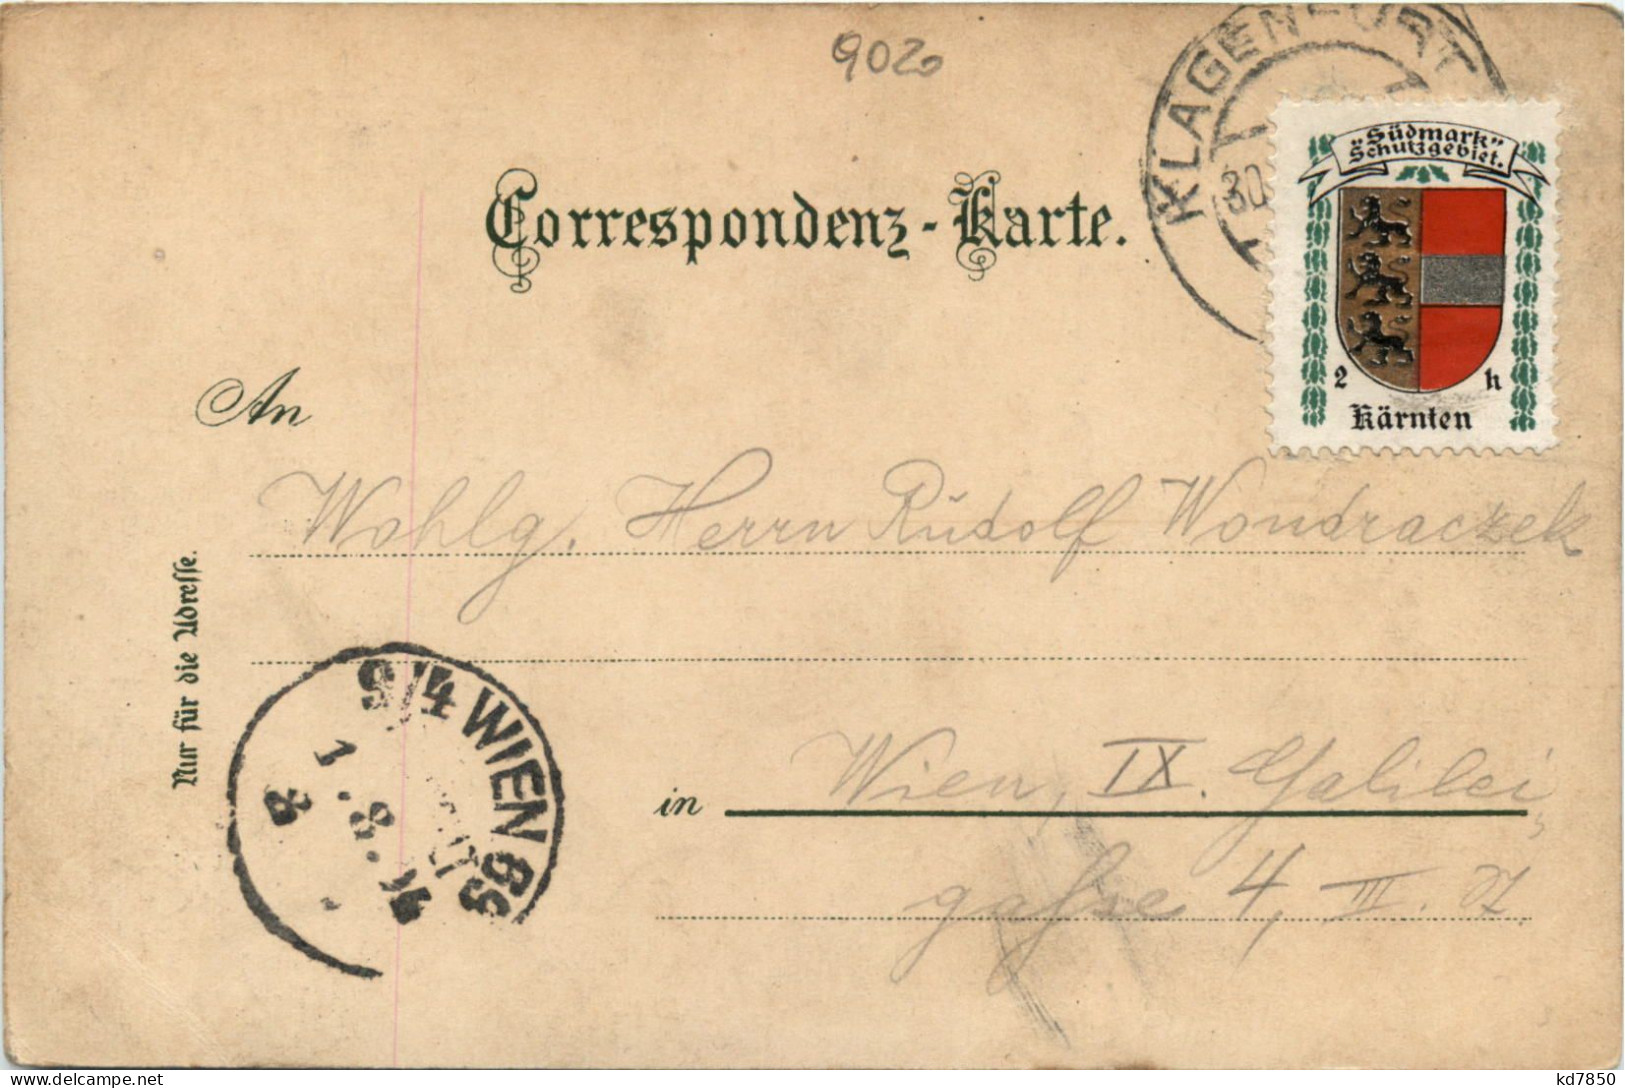 9020
KLAGENFURT
30
"Südmark"
Schutzgebiet.
2 h
Kärnten
Correspondenz-Karte.
An
Wohlg. Herrn Rudolf Wondraczek
Nur für die Adresse.
9/4 WIEN 69
1.8.
8
in Wien, IX. Galilei
gasse 4, III.
kd7850